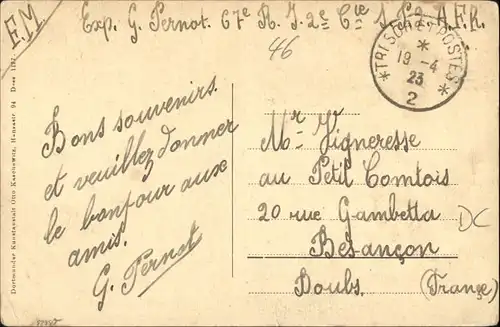 F.M.
Exp. G. Pernot. 67e R.I. 2e Cie S.P.2 A.F.R.
46
* TRESOR ET POSTES *
*
19 - 4
23
2
Bons souvenirs
et veuillez donner
le bonjour aux
amis.
G. Pernot
Mr Vigneresse
au Petit Comtois
20 rue Gambetta
DC
Besançon
Doubs. (France)
Dortmunder Kunstanstalt Otto Kaschewen, Hansastr 94